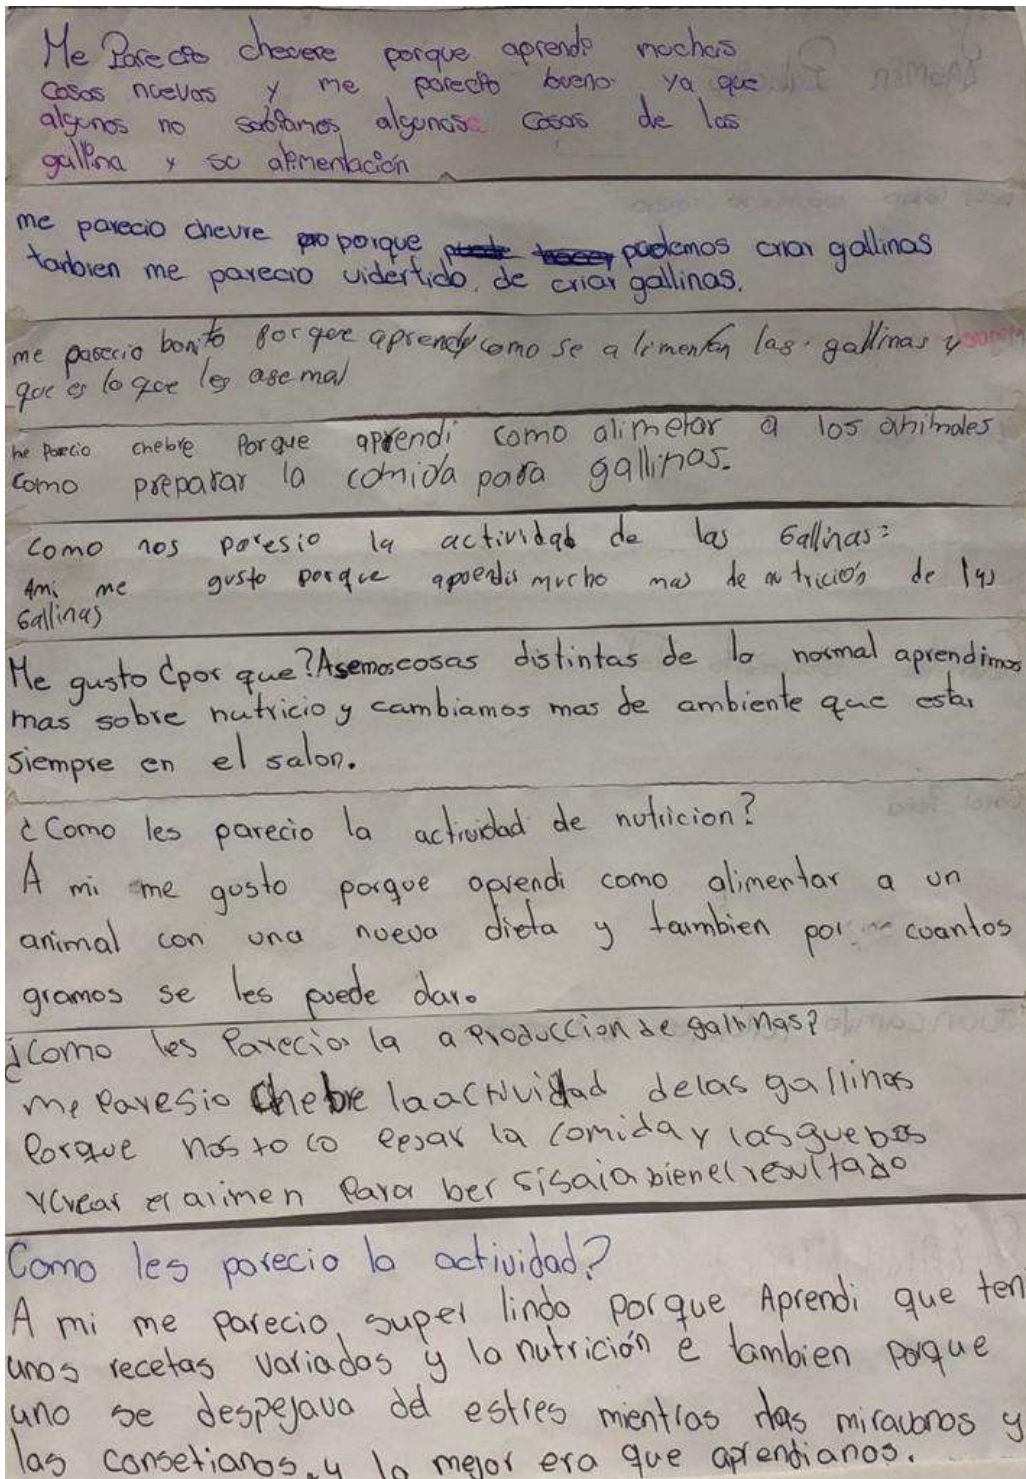 Me Parecio chevere porque aprendi muchas
cosas nuevas y me parecio bueno ya que
algunos no sabiamos algunas cosas de las
gallina y su alimentación
me parecio chevre pro porque podemos criar gallinas
tanbien me parecio vidertido, de criar gallinas.
me parecio bonito porque aprendy como se alimentan las gallinas y
que es lo que les ase mal
me parecio chebre Porque aprendi como alimetar a los animales
como preparar la comida para gallinas.
Como nos paresio la actividad de las Gallinas:
Ami me gusto porque apoendis mucho mas de nutrición de las
Gallinas
Me gusto ¿por que? Asemos cosas distintas de lo normal aprendimos
mas sobre nutricio y cambiamos mas de ambiente que estar
siempre en el salon.
¿Como les parecio la actividad de nutricion?
A mi me gusto porque aprendi como alimentar a un
animal con una nueva dieta y tambien por cuantos
gramos se les puede dar.
¿Como les Parecio la a Produccion de gallinas?
me Paresio chebre la actividad de las gallinas
Porque nos toco pesar la comida y las guebos
y crear el alimen Para ber si saia bien el resultado
Como les parecio la actividad?
A mi me parecio super lindo porque Aprendi que ten
unas recetas variadas y la nutrición e tambien porque
uno se despejava del estres mientras las miravanos y
las consetianos. y lo mejor era que aprendianos.